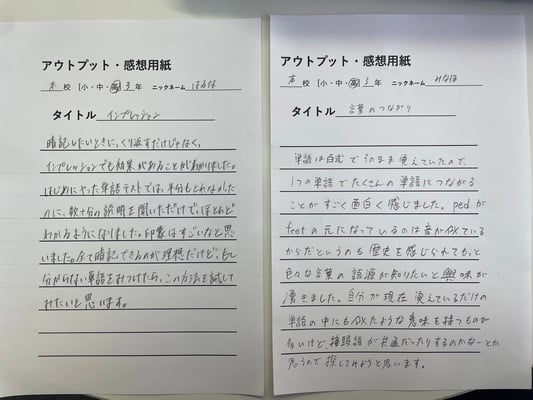 アウトプット・感想用紙
本 校 [小・中・高] 3 年 ニックネーム はるな
タイトル インプレッション
暗記したいときに、くり返すだけじゃなく、
インプレッションでも効果があることがわかりました。
はじめにやった単語テストでは、半分もとれなかった
のに、数十分の説明を聞いただけで、ほとんど
わかるようになりました。印象はすごいなと思
いました。全て暗記できるのが理想だけど、もし
分からない単語をみつけたら、この方法を試して
みたいと思います。
アウトプット・感想用紙
本 校 [小・中・高] 3 年 ニックネーム みなほ
タイトル 言葉のつながり
単語は でそのまま覚えていたので、
1つの単語でたくさんの単語につながる
ことがすごく面白く感じました。pedが
feetの元になっているのは音が似ている
からだというのも歴史を感じられてもっと
色々な言葉の語源が知りたいと興味が
湧きました。自分が現在覚えているだけの
単語の中にも似たような意味を持つものが
多いけど、接頭語が共通だったりするのかなーとか
思うので探してみようと思います。